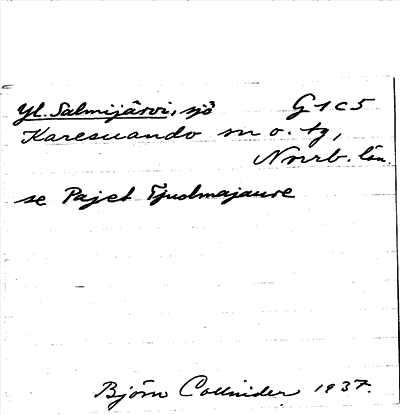 Yl. Salmijärvi, sjö G1c5
Karesuando sn o. tg,
Norrb. län.
se Pajet Tjuolmajaure
Björn Collinder 1937.